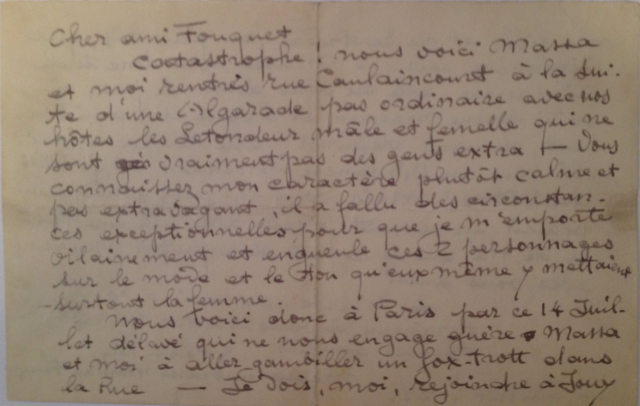 Cher ami Fouquet
Coetastrophe ! nous voici Massa
et moi rentrés rue Caulaincourt à la sui-
te d'une Algarade pas ordinaire avec nos
hôtes les Letondeur mâle et femelle qui ne
sont vraiment pas des gens extra — Vous
connaissez mon caractère plutôt calme et
pas extravagant, il a fallu des circonstan-
ces exceptionnelles pour que je m'emporte
vilainement et engueule ces 2 personnages
sur le mode et le ton qu'eux même y mettaient
- surtout la femme.
Nous voici donc à Paris par ce 14 Juil-
let délavé qui ne nous engage guère Massa
et moi à aller gambiller un fox trott dans
la Rue — Je dois, moi, rejoindre à Jouy